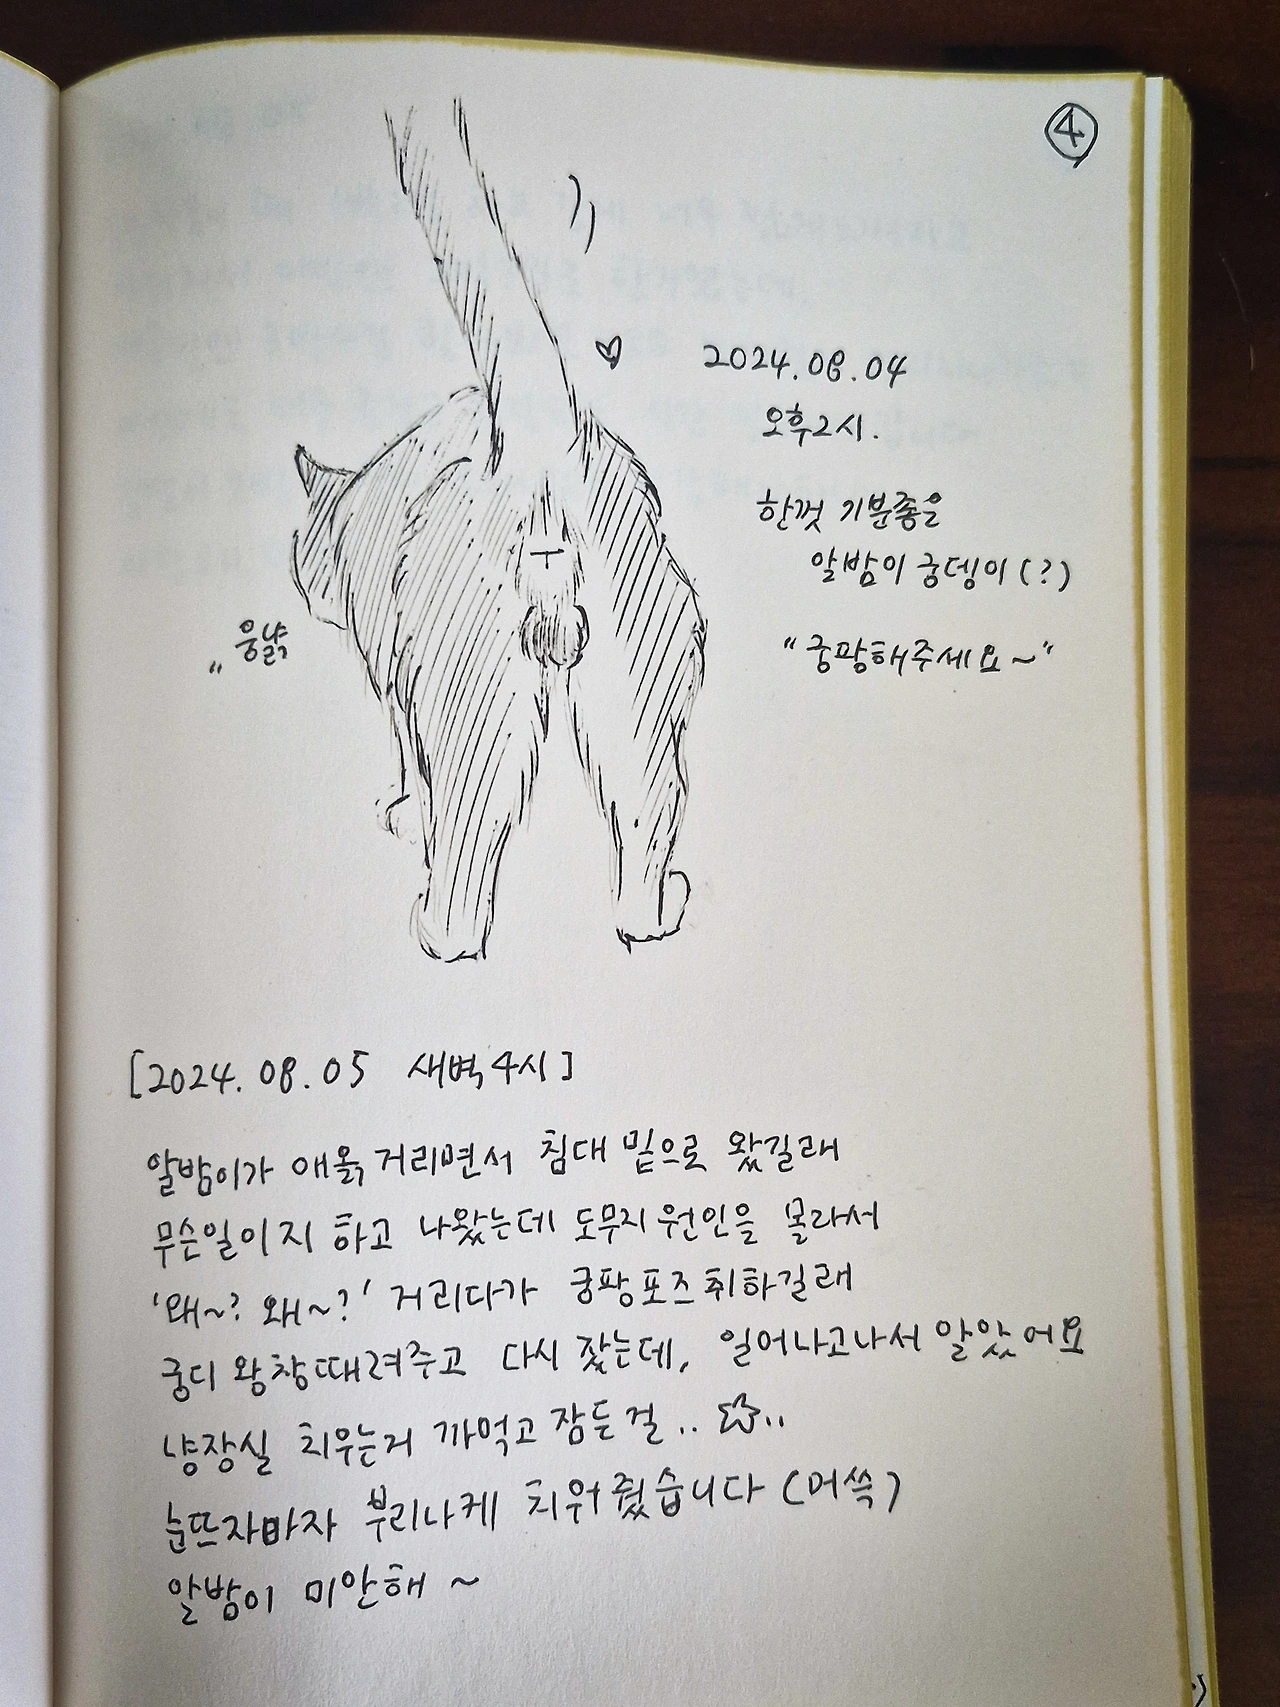 ④
2024.08.04
오후2시.
한껏 기분좋은
알밤이 궁뎅이(?)
"궁팡해주세요~"
"웅냙
[2024.08.05 새벽4시]
알밤이가 애옭거리면서 침대 밑으로 왔길래
무슨일이지 하고 나왔는데 도무지 원인을 몰라서
'왜~? 왜~?' 거리다가 궁팡포즈취하길래
궁디 왕창때려주고 다시 잤는데, 일어나고나서 알았어요
냥장실 치우는거 까먹고 잠든걸.. ☆..
눈뜨자마자 부리나케 치워줬습니다 (머쓱)
알밤이 미안해 ~